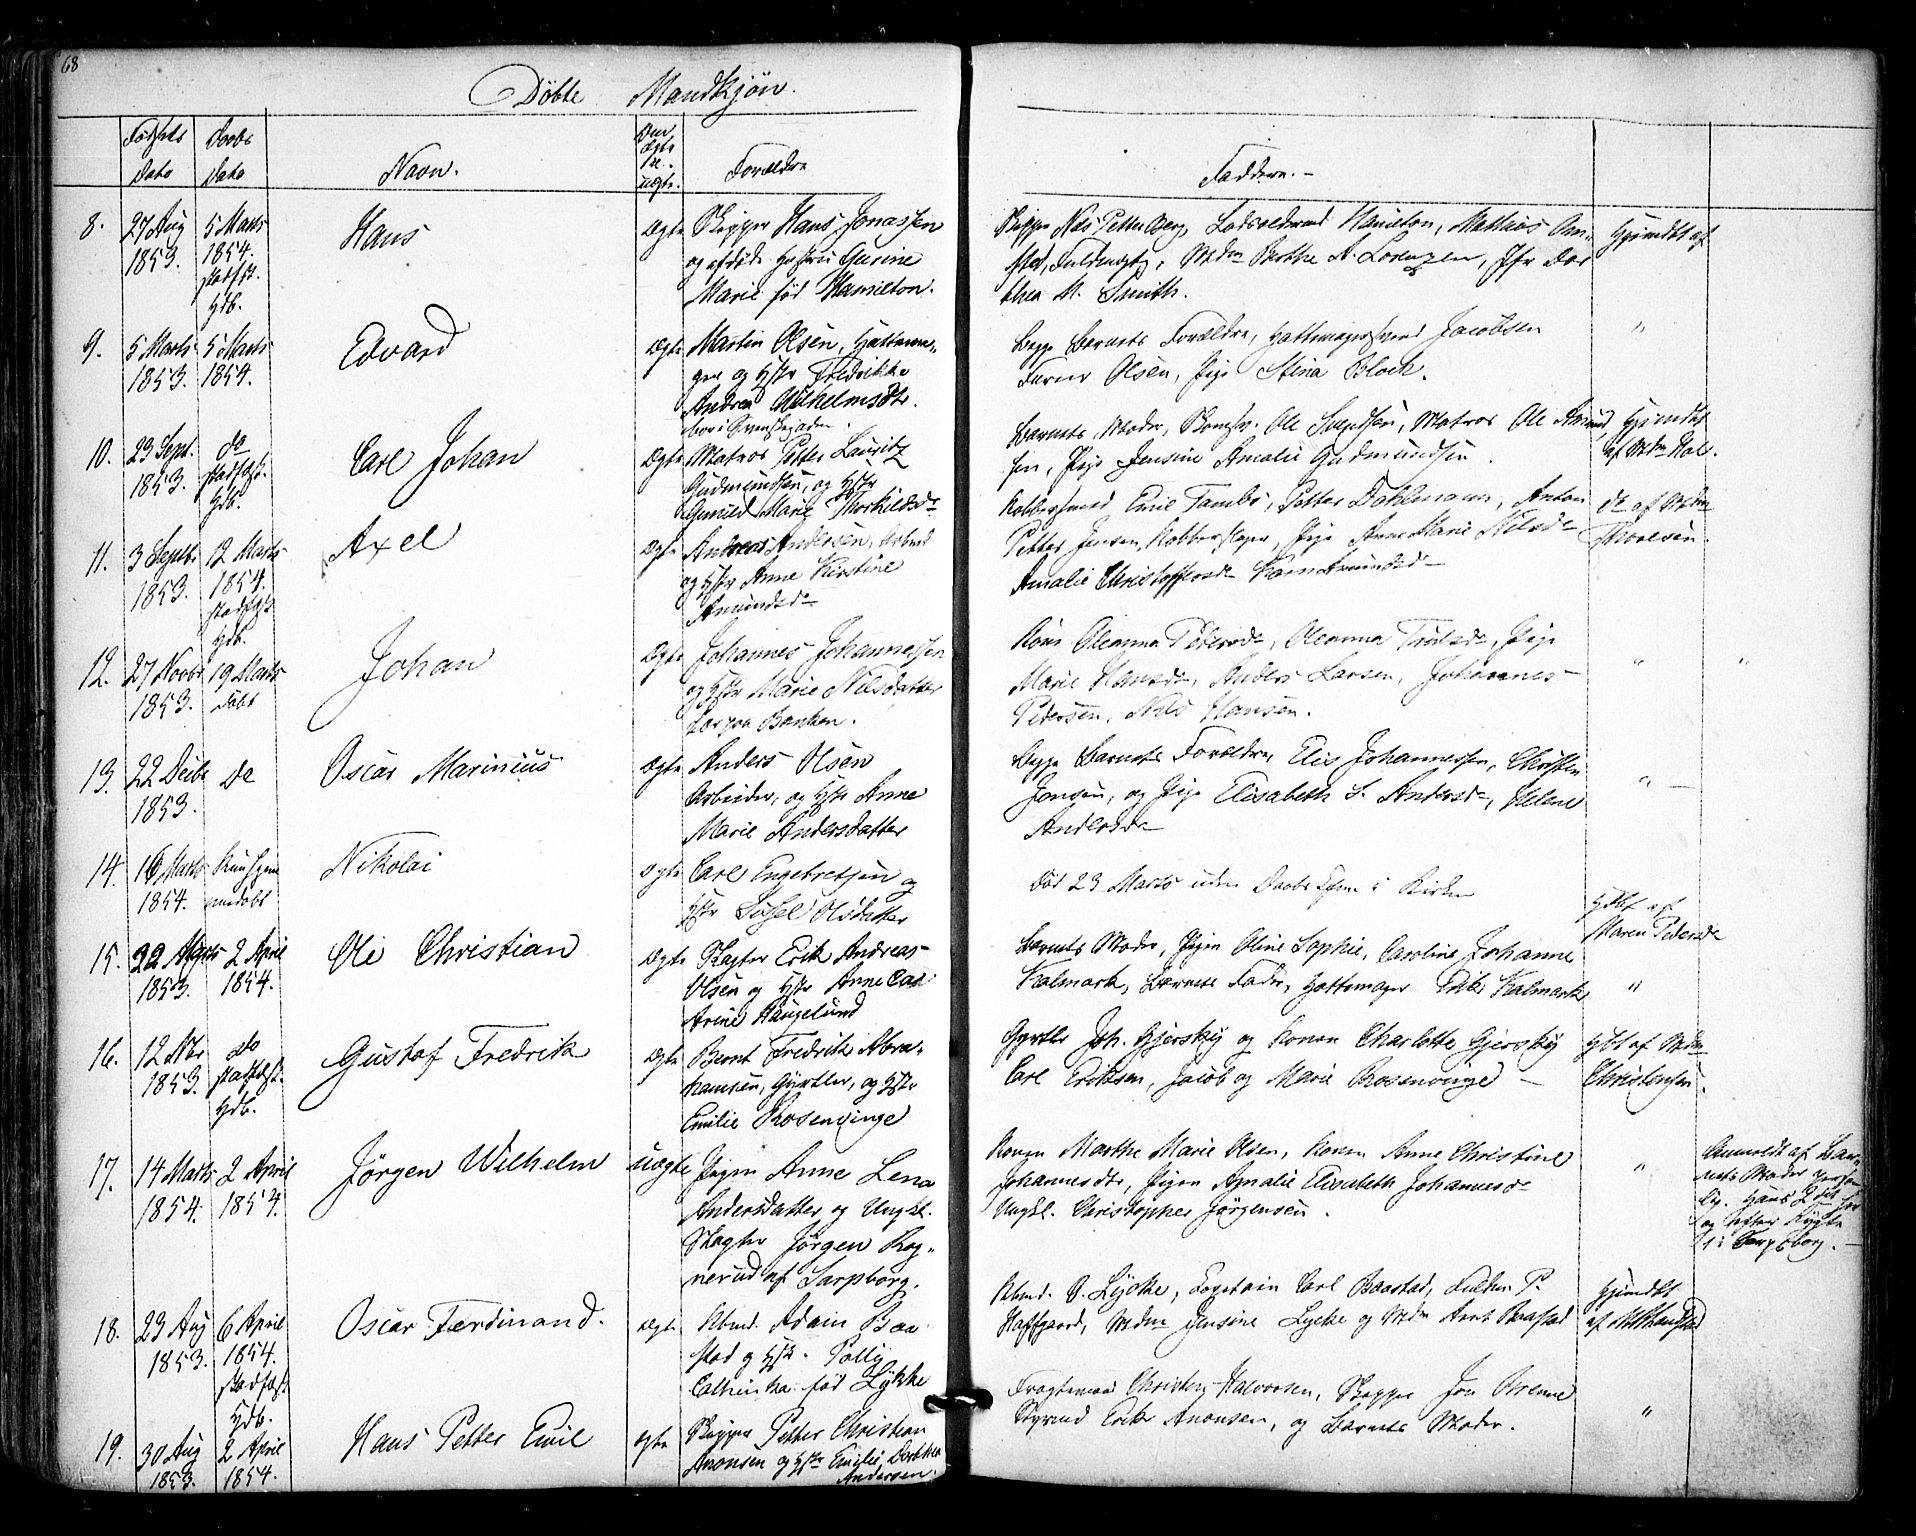 68
Döbte Mandkjøn.
Fødsels Dato
Daabs Dato
Navn.
Om ægte ell. uægte.
Forældre
Faddere.-
8. 27 Aug 1853. 5 Marts 1854. stadfst. Hdb.
Hans
Ægte
Skipper Hans Jonassen
og afdøde Hustru Gurine
Marie fød Hamilton.
Skipper Nils Petter Berg, Hamilton, Mathias
Fuldmægtig, Mdm Berthe A. Lorenzen, Jfr Dor
thea M. Smith.
Hjemdöbt af
9. 5 Marts 1853. 5 Marts 1854.
Edvard
Ægte
Martin Olsen, Hattema-
ger og Hstr Fredrikke
Andrea Wilhelmsdtr.
boe i Svenskegaden.
Begge Barnets Forældre, Hattemagersvend Jacobsen
Olsen, Pige Stina Block.
"
10. 23 Sept. 1853. do stadfæst. Hdb.
Carl Johan
Ægte
Matros Petter Lauritz
Gudmundsen, og Hstr
Gunild Marie Thorkildsdr
Barnets Moder, Ole Svendsen, Matros Ole Amund
sen, Pige Jensine Amalie Gudmundsen.
Hjemdöbt
af Mdm Hol.
11. 3 Septbr 1853. 12 Marts 1854. stadfæst. Hdb.
Axel
Ægte
Andreas Andersen, Arbmd
og Hstr Anne Kirstine
Amundsdr
Kobbersmed Emil Tambs, Petter Dahlmann, Anton
Petter Jensen, Kobberslager, Pige Anne Marie Nilsdr
Amalie Christoffersdr Karn Amundsdr
do af Mdm
Thoresen.
12. 27 Novbr 1853. 19 Marts Döbt
Johan
Ægte
Johannes Johannessen
og Hstr Marie Nilsdatter
boe paa Banken.
Kone Oleanna Pedersdr, Oleanna Trulsdr, Pige
Marie Hansdr, Anders Larsen, Johannes
Pedersen, Nils Hansen.
" "
13. 22 Decbr 1853. Do
Oscar Marinius
Ægte
Anders Olsen
Arbeider, og Hstr Anne
Marie Andersdatter
Begge Barnets Forældre, Elis Johannessen, Christen
Jensen, og Pige Elisabeth S. Andersdr, Helene
Andersdr
"
14. 16 Marts 1854. Kun hjem medöbt
Nikolai
Ægte
Carl Engebretsen og
Hstr Sissel Olsdatter
Död 23 Marts uden Daabs i Kirken
Hdbt af
Maren Pedersdr
15. 22 1853. 2 April 1854.
Ole Christian
Ægte
Slagter Erik Andreas
Olsen og Hstr Anne Cat
arine Haugelund
Barnets Moder, Pigen Oline Sophie, Caroline Johanne
Kalmark, Barnets Fader, Hattemager Kalmark
"
16. 12 Nbr 1853. Do stadfæst. Hdb.
Gustaf Fredrik
Ægte
Bernt Fredrik Abra-
hamsen, Gjørtler, og Hstr
Emilie Rosenvinge
Gjørtler Joh. Gjersky og Konen Charlotte Gjersky
Carl Eriksen, Jacob og Marie Rosenvinge
Hdbt af Mdm
Christensen.
17. 14 Marts 1854. 2 April 1854.
Jörgen Wilhelm
uægte
Pigen Anne Lena
Andersdatter og Ungkl.
Slagter Jörgen Rog-
nerud af Sarpborg.
Konen Marthe Marie Olsen, Konen Anne Christine
Johannesdtr, Pigen Amalie Elisabeth Johannesdr
Ungkl. Christopher Jörgensen.
"
Anmeldt af Bar-
nets Moder person
lig. Hans 2det
og efter Rygte
1 i Sarpsborg.
18. 23 Aug 1853. 6 April 1854. stadfæst. Hdb.
Oscar Ferdinand.
Ægte
Kbmd. Adam Baa
stad og Hstr. Polly
Cathinka fød Lykke
Kbmd. Lycke, Captain Carl Baastad, Fuldm P.
Haffgaard, Mdm Jensine Lycke og Mdm Baastad
Hjemdöbt
19. 30 Aug 1853. 2 April 1854.
Hans Petter Emil
Ægte
Skipper Petter Christian
Anonsen og Hstr Emilie Dorthea
Andersen.
Fragtemand Christen Halvorsen, Skipper Jon
Styrmd Erik Anonsen, og Barnets Moder.
"